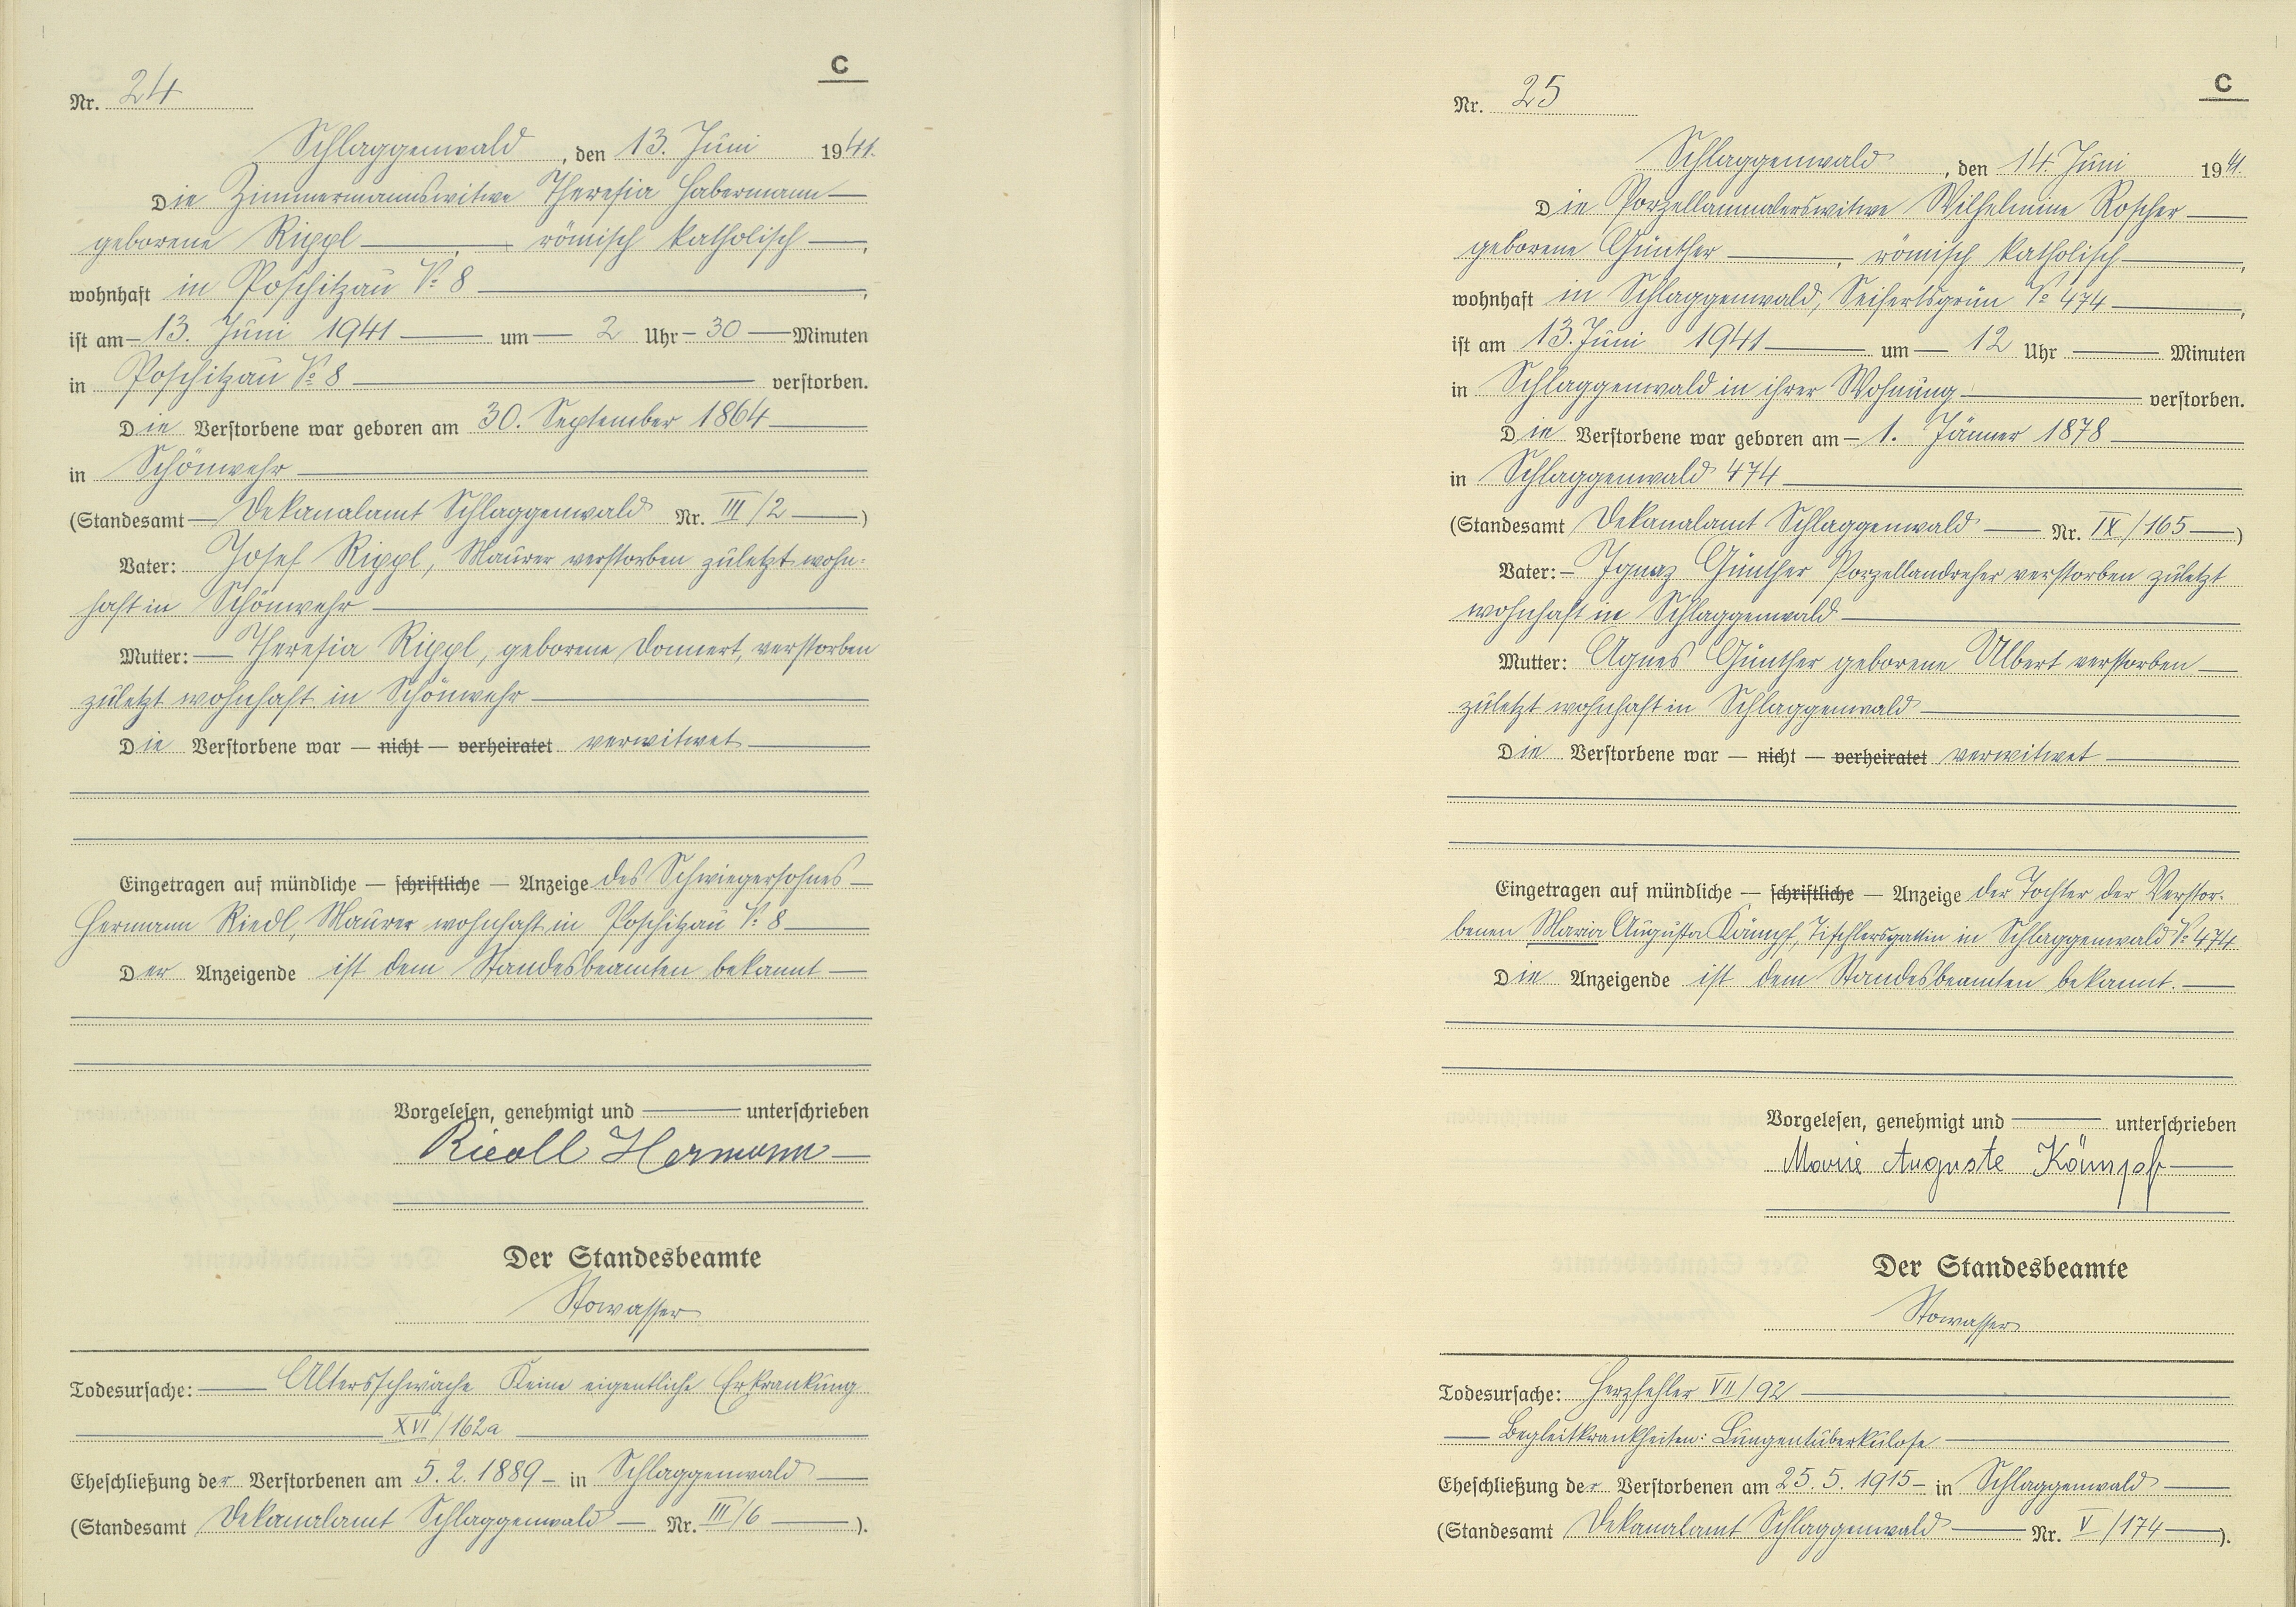 C
Nr. 24
Schlaggenwald, den 13. Juni 1941.
Die Zimmermannswitwe Theresia Habermann
geborene Rippl, römisch katholisch,
wohnhaft in Poschitzau No 8,
ist am 13. Juni 1941 um 2 Uhr 30 Minuten
in Poschitzau No 8 verstorben.
Die Verstorbene war geboren am 30. September 1864
in Schönwehr
(Standesamt Dekanalamt Schlaggenwald Nr. III/2)
Vater: Josef Rippl, Maurer verstorben zuletzt wohn-
haft in Schönwehr
Mutter: Theresia Rippl, geborene Donnert, verstorben
zuletzt wohnhaft in Schönwehr
Die Verstorbene war — nicht — verheiratet verwitwet
Eingetragen auf mündliche — schriftliche — Anzeige des Schwiegersohnes
Hermann Riedl, Maurer wohnhaft in Poschitzau No 8
Der Anzeigende ist dem Standesbeamten bekannt
Vorgelesen, genehmigt und unterschrieben
Riedl Hermann
Der Standesbeamte
Stowasser
Todesursache: Altersschwäche Keine eigentliche Erkrankung
XVI/162a
Eheschließung der Verstorbenen am 5.2.1889 in Schlaggenwald
(Standesamt Dekanalamt Schlaggenwald Nr. III/6).
C
Nr. 25
Schlaggenwald, den 14. Juni 1941.
Die Porzellanmalerswitwe Wilhelmine Roscher
geborene Günther, römisch katholisch,
wohnhaft in Schlaggenwald, Seifertsgrün No 474,
ist am 13. Juni 1941 um 12 Uhr Minuten
in Schlaggenwald in ihrer Wohnung verstorben.
Die Verstorbene war geboren am 1. Jänner 1878
in Schlaggenwald 474
(Standesamt Dekanalamt Schlaggenwald Nr. IX/165)
Vater: Ignaz Günther Porzellandreher verstorben zuletzt
wohnhaft in Schlaggenwald
Mutter: Agnes Günther geborene Albert verstorben
zuletzt wohnhaft in Schlaggenwald
Die Verstorbene war — nicht — verheiratet verwitwet
Eingetragen auf mündliche — schriftliche — Anzeige der Tochter der Verstor-
benen Maria Augusta Kämpf, Tischlersgattin in Schlaggenwald No 474
Die Anzeigende ist dem Standesbeamten bekannt.
Vorgelesen, genehmigt und unterschrieben
Marie Auguste Kämpf
Der Standesbeamte
Stowasser
Todesursache: Herzfehler VII/92
Begleitkrankheiten: Lungentuberkulose
Eheschließung der Verstorbenen am 25.5.1915 in Schlaggenwald
(Standesamt Dekanalamt Schlaggenwald Nr. V/174).